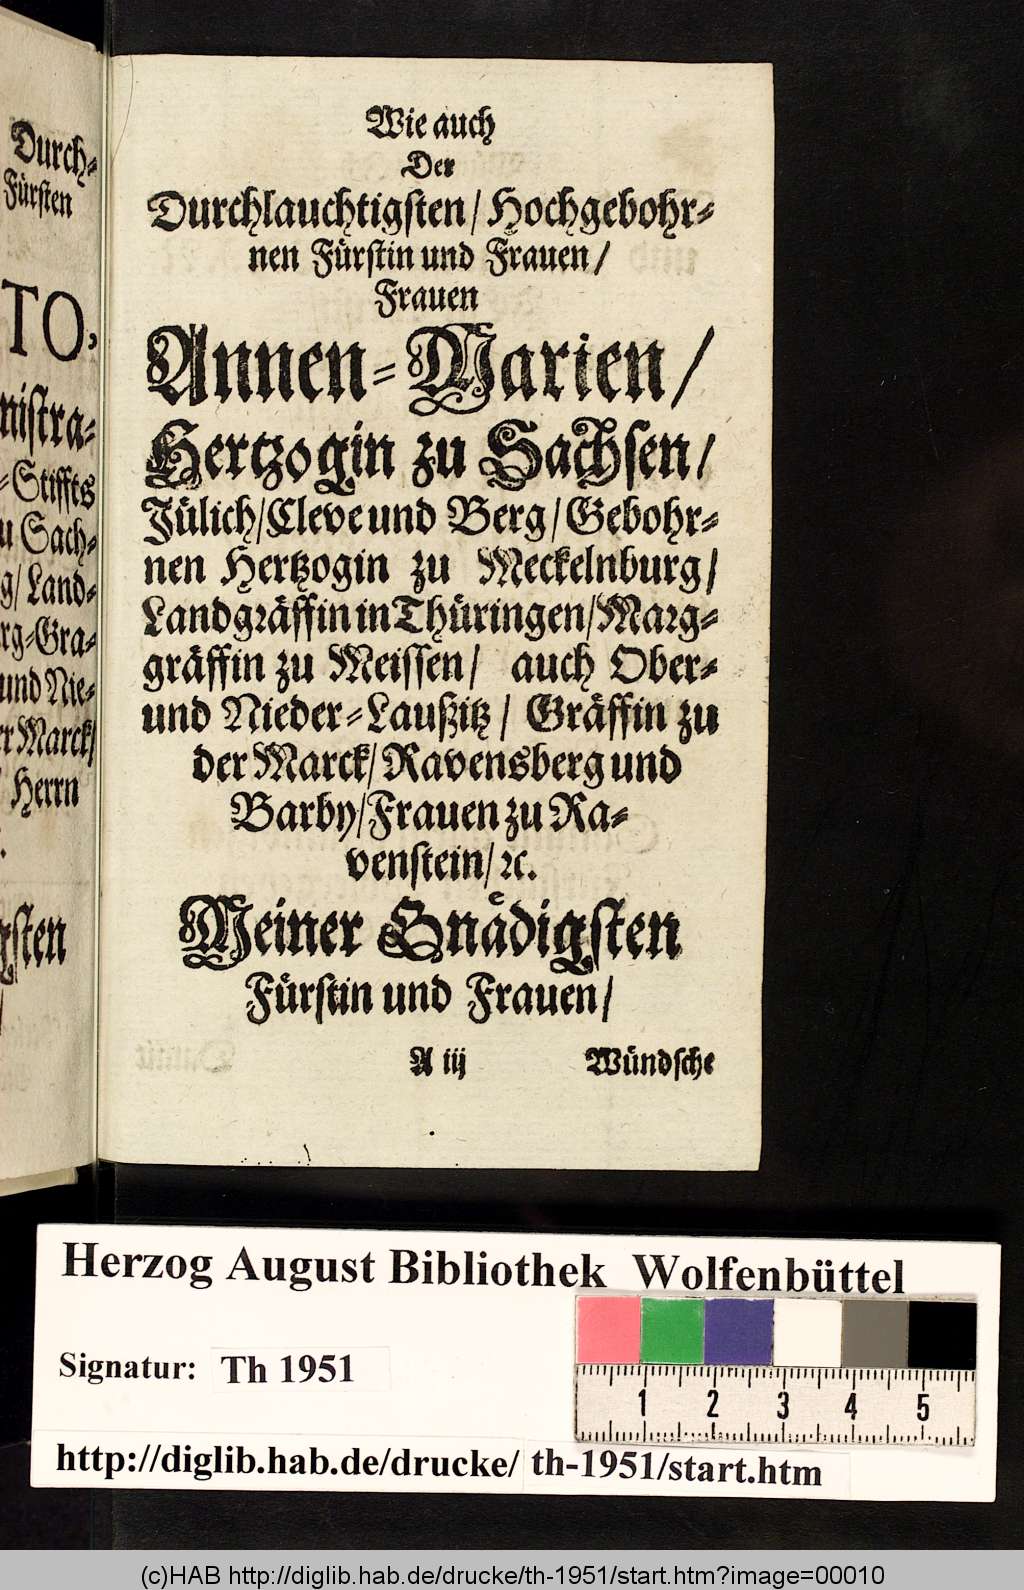 Durch-
Fürsten
TO,
nistra-
-Stiffts
Sach-
Land-
Gra-
und Nie-
Marck/
Herrn
Wie auch
Der
Durchlauchtigsten/ Hochgebohr-
nen Fürstin und Frauen/
Frauen
Annen-Marien/
Hertzogin zu Sachsen/
Jülich/Cleve und Berg/Gebohr-
nen Hertzogin zu Meckelnburg/
Landgräffin in Thüringen/Marg-
gräffin zu Meissen/ auch Ober-
und Nieder-Laußitz/ Gräffin zu
der Marck/Ravensberg und
Barby/Frauen zu Ra-
venstein/ ꝛc.
Meiner Gnädigsten
Fürstin und Frauen/
A iij Wündsche
Herzog August Bibliothek Wolfenbüttel
Signatur: Th 1951
1 2 3 4 5
http://diglib.hab.de/drucke/ th-1951/start.htm
(c)HAB http://diglib.hab.de/drucke/th-1951/start.htm?image=00010